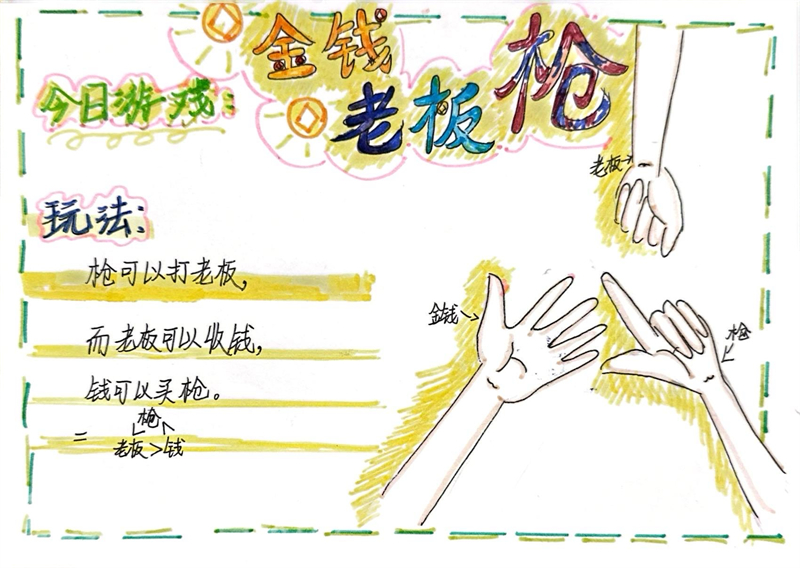 今日游戏：
金钱
老板枪
玩法：
枪可以打老板，
而老板可以收钱，
钱可以买枪。
枪
= 老板＞钱
老板
金钱
枪